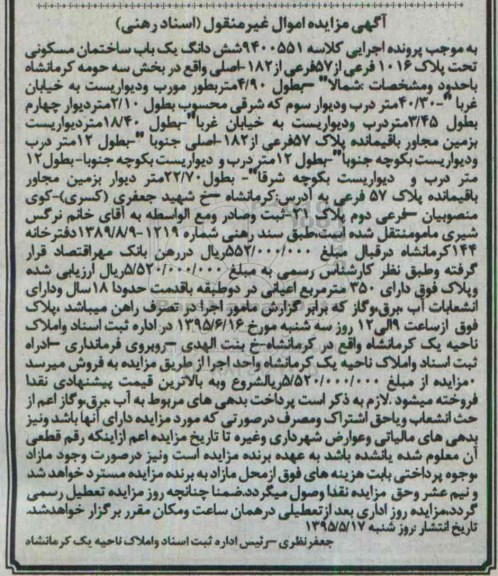 آگهی مزایده اموال غیرمنقول (اسناد رهنی)
به موجب پرونده اجرایی کلاسه ۹۴۰۰۵۵۱شش دانگ یک باب ساختمان مسکونی
تحت پلاک ۱۰۱۶ فرعی از۵۷فرعی از۱۸۲-اصلی واقع در بخش سه حومه کرمانشاه
باحدود ومشخصات :شمالا" –بطول ۴/۹۰متربطور مورب ودیواریست به خیابان
غربا "-۴۰/۳۰متر درب ودیوار سوم که شرقی محسوب بطول ۲/۱۰متردیوار چهارم
بطول ۳/۴۵متردرب ودیواریست به خیابان غربا"-بطول ۱۸/۴۰متردیواریست
بزمین مجاور باقیمانده پلاک ۵۷فرعی از۱۸۲-اصلی جنوبا "-بطول ۱۲متر درب
ودیواریست بکوچه جنوبا"-بطول ۱۲متر درب و دیواریست بکوچه جنوبا-بطول۱۲
متر درب و دیواریست بکوچه شرقا"- بطول۲۲/۷۰متر دیوار بزمین مجاور
باقیمانده پلاک ۵۷ فرعی به آدرس:کرمانشاه –خ شهید جعفری (کسری)-کوی
منصوبیان –فرعی دوم پلاک ۲۱-ثبت وصادر ومع الواسطه به آقای خانم نرگس
شیری مامومنتقل شده است،طبق سند رهنی شماره ۱۲۱۹-۱۳۸۹/۸/۹دفترخانه
۱۴۴کرمانشاه درقبال مبلغ ۵۵۲/۰۰۰/۰۰۰ریال دررهن بانک مهراقتصاد قرار
گرفته وطبق نظر کارشناس رسمی به مبلغ ۵/۵۲۰/۰۰۰/۰۰۰ریال ارزیابی شده
وپلاک فوق دارای ۳۵۰ مترمربع اعیانی در دوطبقه باقدمت حدودا ۱۸سال ودارای
انشعابات آب ،برق،وگاز که برابر گزارش مامور اجرا در تصرف راهن میباشد ،پلاک
فوق ازساعت ۹الی۱۲ روز سه شنبه مورخ ۱۳۹۵/۶/۱۶ در اداره ثبت اسناد واملاک
ناحیه یک کرمانشاه واقع در کرمانشاه-خ بنت الهدی –روبروی فرمانداری –ادراه
ثبت اسناد واملاک ناحیه یک کرمانشاه واحد اجرا از طریق مزایده به فروش میرسد
۰مزایده از مبلغ ۵/۵۲۰/۰۰۰/۰۰۰ریالشروع وبه بالاترین قیمت پیشنهادی نقدا
فروخته میشود .لازم به ذکر است پرداخت بدهی های مربوط به آب ،برق،وگاز اعم از
حث انشعاب ویاحق اشتراک ومصرف درصورتی که مورد مزایده دارای آنها باشد ونیز
بدهی های مالیاتی وعوارض شهرداری وغیره تا تاریخ مزایده اعم ازاینکه رقم قطعی
آن معلوم شده یانشده باشد به عهده برنده مزایده است ونیز درصورت وجود مازاد
،وجوه پرداختی بابت هزینه های فوق ازمحل مازاد به برنده مزایده مسترد خواهد شد
و نیم عشر وحق مزایده نقدا وصول میگردد.ضمنا چنانچه روز مزایده تعطیل رسمی
گردد،مزایده روز اداری بعد ازتعطیلی درهمان ساعت ومکان مقرر برگزار خواهدشد.
تاریخ انتشار :روز شنبه ۱۳۹۵/۵/۱۷
جعفرنظری –رئیس اداره ثبت اسناد واملاک ناحیه یک کرمانشاه